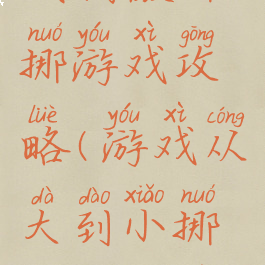 nuó yóu xì gōng
挪游戏攻
lüè yóu xì cóng
略(游戏从
dà dào xiǎo nuó
大到小挪